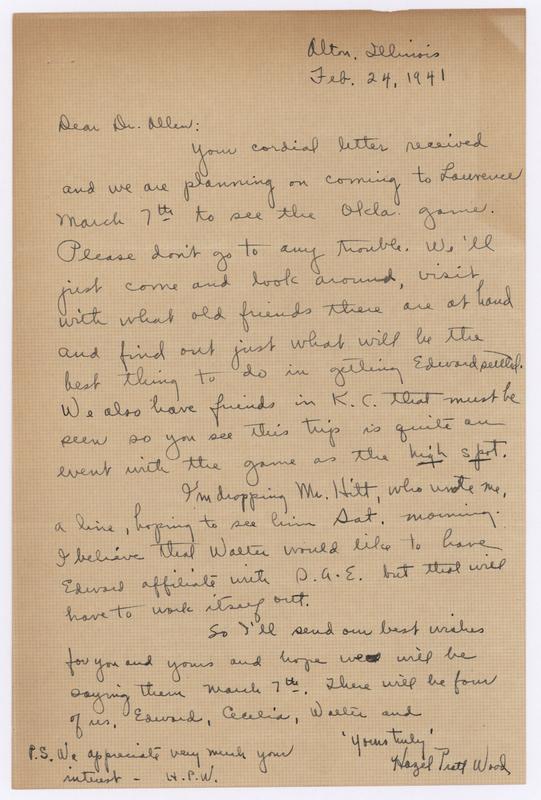 Alton, Illinois
Feb. 24, 1941
Dear Dr. Allen:
Your cordial letter received
and we are planning on coming to Lawrence
March 7th to see the Okla. game.
Please don't go to any trouble. We'll
just come and look around, visit
with what old friends there are at hand
and find out just what will be the
best thing to do in getting Edward settled.
We also have friends in K.C. that must be
seen so you see this trip is quite an
event with the game as the high spot.
I'm dropping Mr. Hitt, who wrote me,
a line, hoping to see him Sat. morning.
I believe that Walter would like to have
Edward affiliate with S.A.E. but that will
have to work itself out.
So I'll send our best wishes
for you and yours and hope we will be
saying them March 7th. There will be four
of us, Edward, Cecelia, Walter and
"Yours truly"
Hazel Pratt Wood
P.S. We appreciate very much your
interest - H.P.W.